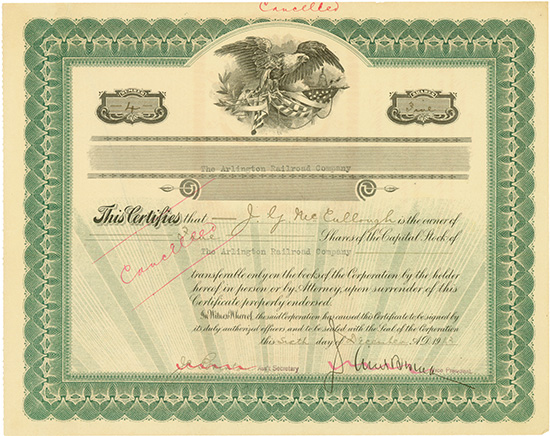 Cancelled
NUMBER SHARES
4
The Arlington Railroad Company
This Certifies that J. G. McCullough is the owner of
Shares of the Capital Stock of
The Arlington Railroad Company
Cancelled
transferable only on the books of the Corporation by the holder
hereof in person or by Attorney, upon surrender of this
Certificate properly endorsed.
In Witness Whereof, the said Corporation has caused this Certificate to be signed by
its duly authorized officers and to be sealed with the Seal of the Corporation
this Sixth day of December A.D. 19
Ass't Secretary Vice President